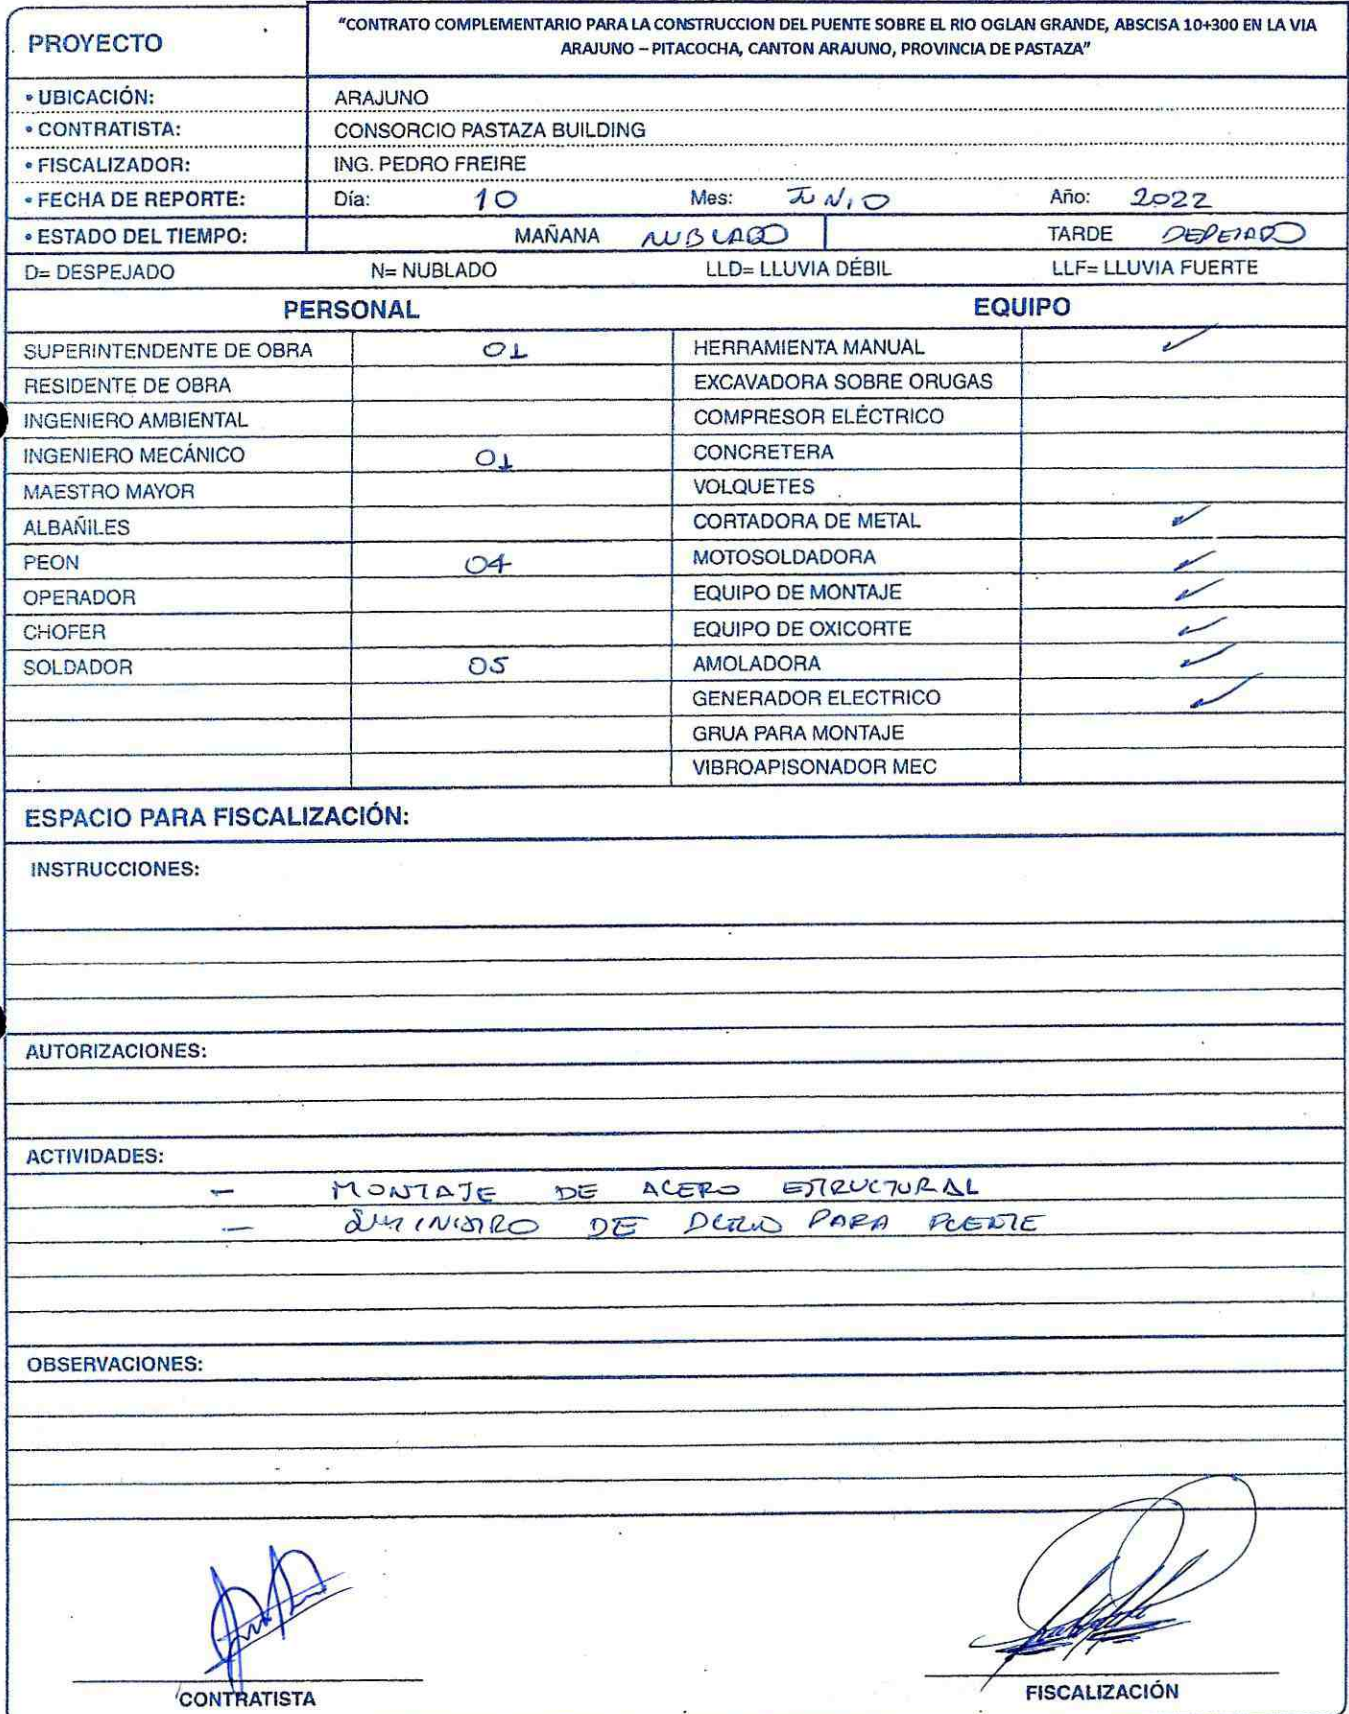 PROYECTO
"CONTRATO COMPLEMENTARIO PARA LA CONSTRUCCION DEL PUENTE SOBRE EL RIO OGLAN GRANDE, ABSCISA 10+300 EN LA VIA
ARAJUNO – PITACOCHA, CANTON ARAJUNO, PROVINCIA DE PASTAZA"
• UBICACIÓN: ARAJUNO
• CONTRATISTA: CONSORCIO PASTAZA BUILDING
• FISCALIZADOR: ING. PEDRO FREIRE
• FECHA DE REPORTE: Día: 10 Mes: JUNIO Año: 2022
• ESTADO DEL TIEMPO: MAÑANA NUBLADO TARDE DEPEJADO
D= DESPEJADO N= NUBLADO LLD= LLUVIA DÉBIL LLF= LLUVIA FUERTE
PERSONAL EQUIPO
SUPERINTENDENTE DE OBRA 01 HERRAMIENTA MANUAL ✓
RESIDENTE DE OBRA EXCAVADORA SOBRE ORUGAS
INGENIERO AMBIENTAL COMPRESOR ELÉCTRICO
INGENIERO MECÁNICO 01 CONCRETERA
MAESTRO MAYOR VOLQUETES
ALBAÑILES CORTADORA DE METAL ✓
PEON 04 MOTOSOLDADORA ✓
OPERADOR EQUIPO DE MONTAJE ✓
CHOFER EQUIPO DE OXICORTE ✓
SOLDADOR 05 AMOLADORA ✓
GENERADOR ELECTRICO ✓
GRUA PARA MONTAJE
VIBROAPISONADOR MEC
ESPACIO PARA FISCALIZACIÓN:
INSTRUCCIONES:
AUTORIZACIONES:
ACTIVIDADES:
– MONTAJE DE ACERO ESTRUCTURAL
– SUMINISTRO DE ACERO PARA PUENTE
OBSERVACIONES:
CONTRATISTA FISCALIZACIÓN